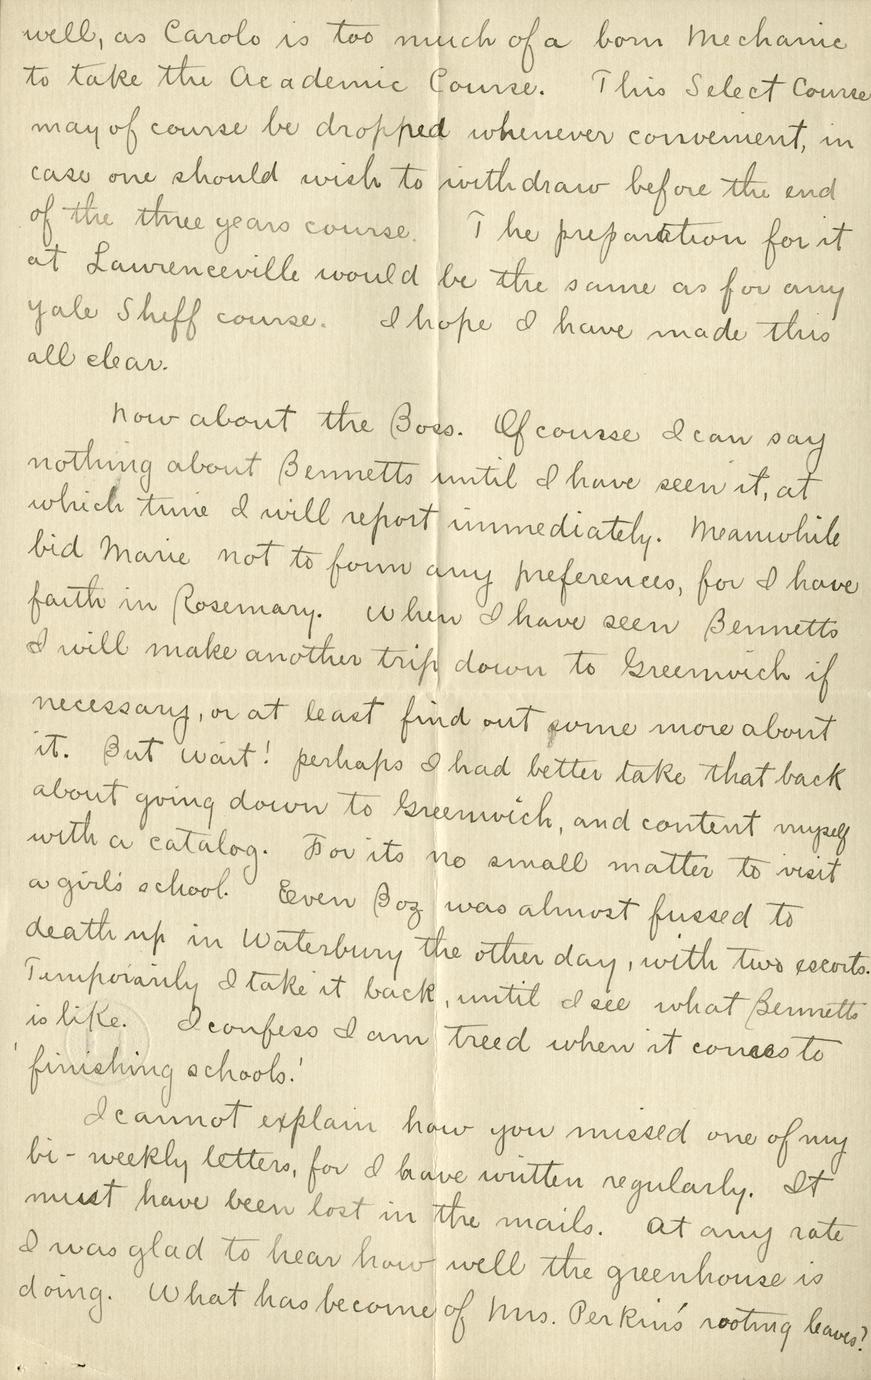 well, as Carolo is too much of a born Mechanic
to take the Academic Course. This Select Course
may of course be dropped whenever convenient, in
case one should wish to withdraw before the end
of the three years course. The preparation for it
at Lawrenceville would be the same as for any
Yale Sheff course. I hope I have made this
all clear.
Now about the Boss. Of course I can say
nothing about Bennetts until I have seen it, at
which time I will report immediately. Meanwhile
bid Marie not to form any preferences, for I have
faith in Rosemary. When I have seen Bennetts
I will make another trip down to Greenwich if
necessary, or at least find out some more about
it. But wait! perhaps I had better take that back
about going down to Greenwich, and content myself
with a catalog. For its no small matter to visit
a girl's school. Even Boz was almost fussed to
death up in Waterbury the other day, with two escorts.
Temporarily I take it back, until I see what Bennetts
is like. I confess I am treed when it comes to
'finishing schools.'
I cannot explain how you missed one of my
bi-weekly letters, for I have written regularly. It
must have been lost in the mails. At any rate
I was glad to hear how well the greenhouse is
doing. What has become of Mrs. Perkin's rooting leaves?